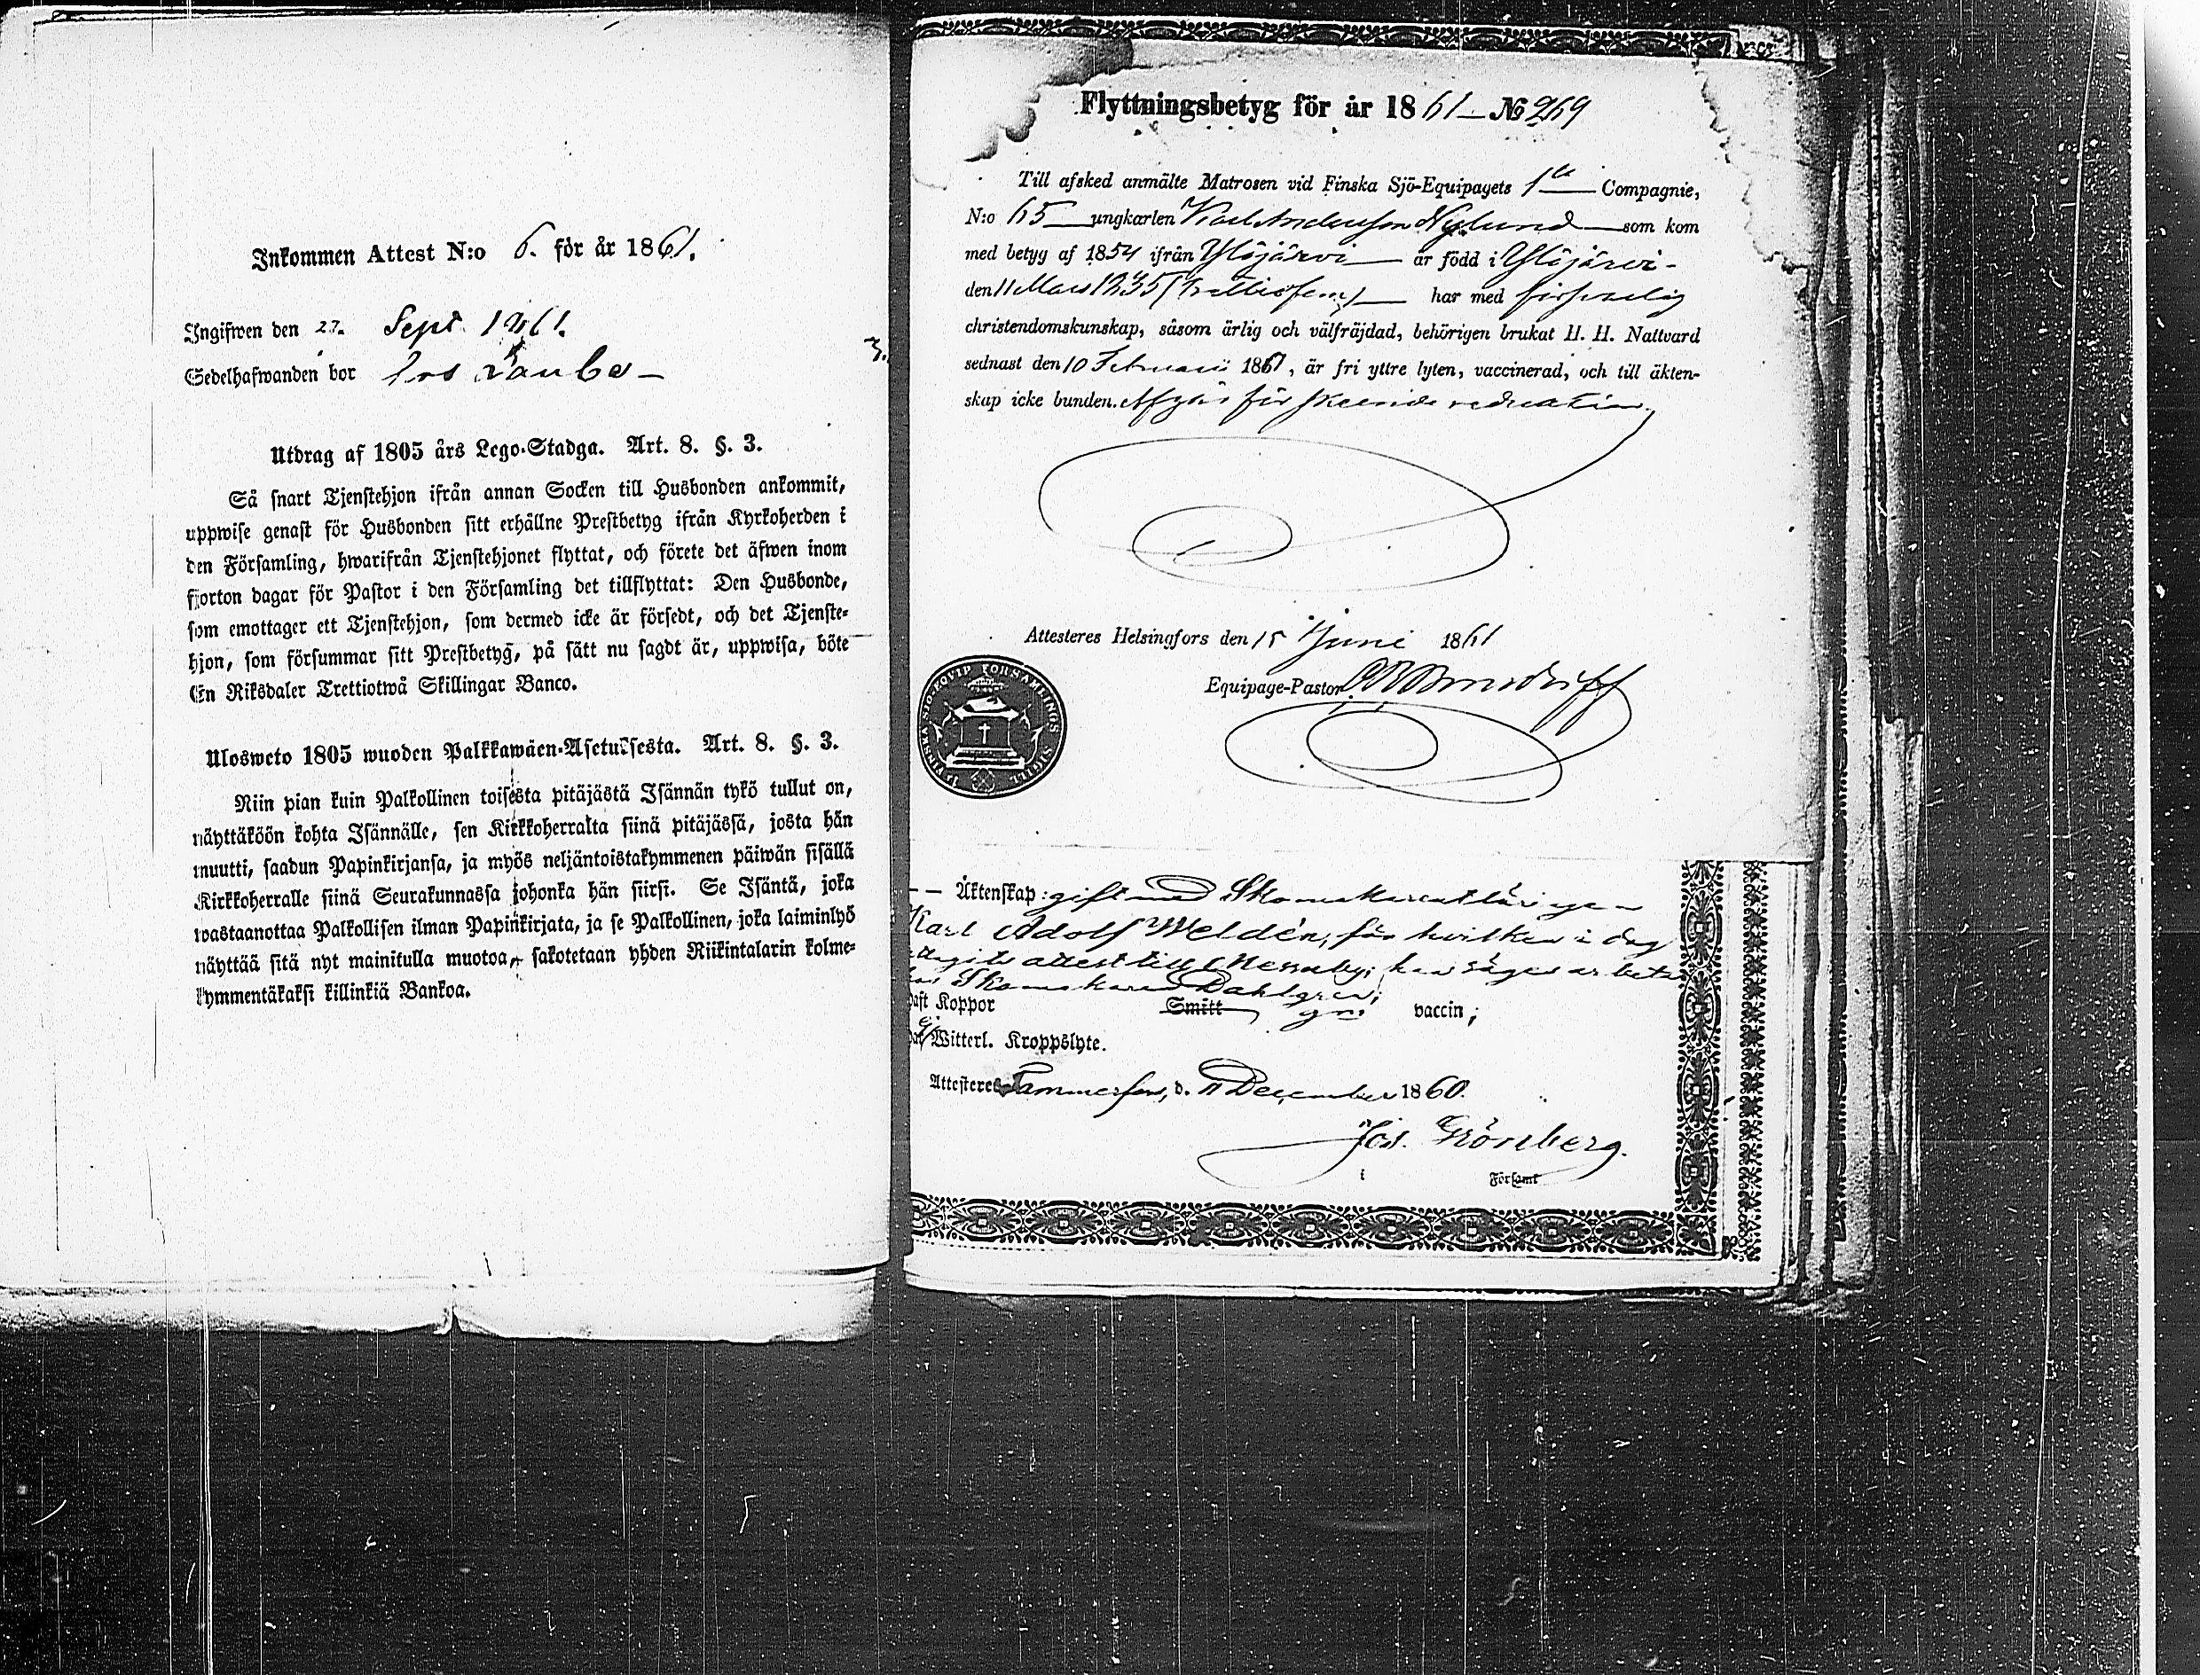 Inkommen Attest N:o 6. för år 1861.
Ingifwen den 27. Sept. 1861.
Sedelhafwanden bor hos
3.
Utdrag af 1805 års Lego-Stadga. Art. 8. §. 3.
Så snart Tjenstehjon ifrån annan Socken till Husbonden ankommit,
uppwise genast för Husbonden sitt erhållne Prestbetyg ifrån Kyrkoherden i
den Församling, hwarifrån Tjenstehjonet flyttat, och förete det äfwen inom
fjorton dagar för Pastor i den Församling det tillflyttat: Den Husbonde,
som emottager ett Tjenstehjon, som dermed icke är försedt, och det Tjenste-
hjon, som försummar sitt Prestbetyg, på sätt nu sagdt är, uppwisa, böte
En Riksdaler Trettiotwå Skillingar Banco.
Ulosweto 1805 wuoden Palkkawäen-Asetuksesta. Art. 8. §. 3.
Niin pian kuin Palkollinen toisesta pitäjästä Isännän tykö tullut on,
näyttäköön kohta Isännälle, sen Kirkkoherralta siinä pitäjässä, josta hän
muutti, saadun Papinkirjansa, ja myös neljäntoistakymmenen päiwän sisällä
Kirkkoherralle siinä Seurakunnassa johonka hän siirsi. Se Isäntä, joka
wastaanottaa Palkollisen ilman Papinkirjata, ja se Palkollinen, joka laiminlyö
näyttää sitä nyt mainitulla muotoa, sakotetaan yhden Riikintalarin kolme-
kymmentäkaksi killinkiä Bankoa.
Flyttningsbetyg för år 1861 — № 269
Till afsked anmälte Matrosen vid Finska Sjö-Equipagets 1sta Compagnie,
N:o 65 ungkarlen Karl Andersson Nylund som kom
med betyg af 1854 ifrån Ylöjärvi är född i Ylöjärvi
den 11 Mars 1835 (trettiofem) har med försvarlig
christendomskunskap, såsom ärlig och välfräjdad, behörigen brukat H. H. Nattvard
sednast den 10 Februarii 1861, är fri yttre lyten, vaccinerad, och till äkten-
skap icke bunden. Afgår för skeende reduction.
Attesteres Helsingfors den 15 Juni 1861
Equipage-Pastor
FINSKA SJÖ-EQUIP FÖRSAMLINGS SIGILL
Äktenskap: gift med Skomakarelärlingen
Karl Adolf Weldén, för hvilken i dag
attest till Messuby; han säges arbeta
hos Skomakaren Dahlgren;
haft Koppor Smitt vaccin;
Witterl. Kroppslyte.
Attesteres Tammerfors, d. 11 December 1860.
Jos. Grönberg.
i Församl.